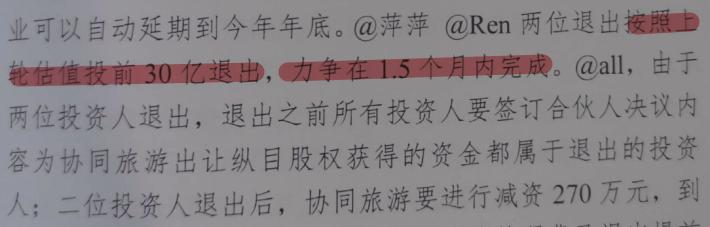 业可以自动延期到今年年底。@萍萍 @Ren 两位退出按照上
轮估值投前 30 亿退出，力争在 1.5 个月内完成。@all，由于
两位投资人退出，退出之前所有投资人要签订合伙人决议内
容为协同旅游出让纵目股权获得的资金都属于退出的投资
人；二位投资人退出后，协同旅游要进行减资 270 万元，到